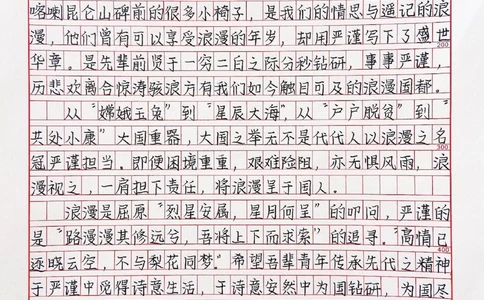 喀喇昆仑山碑前的很多小椅子，是我们的情思与遥记的浪
漫，他们曾有可以享受浪漫的年岁，却用严谨写下了盛世
200
华章。是先辈前贤于一穷二白之际分秒钻研，事事严谨，
历悲欢离合惊涛骇浪方有我们如今触目可及的浪漫国都。
从“嫦娥玉兔”到“星辰大海”，从“户户脱贫”到“
共处小康”大国重器，大国之举无不是代代人以浪漫之名
300
冠严谨担当。即便困境重重，艰难险阻，亦无惧风雨，浪
漫视之，一肩担下责任，将浪漫呈于国人。
浪漫是屈原“烈星安属，星月何呈”的叩问，严谨的
是“路漫漫其修远兮，吾将上下而求索”的追寻。“高情已
400
逐晓云空，不与梨花同梦。”希望吾辈青年传承先代之精神
于严谨中觅得诗意生活，于诗意安然中为国钻研，为国尽